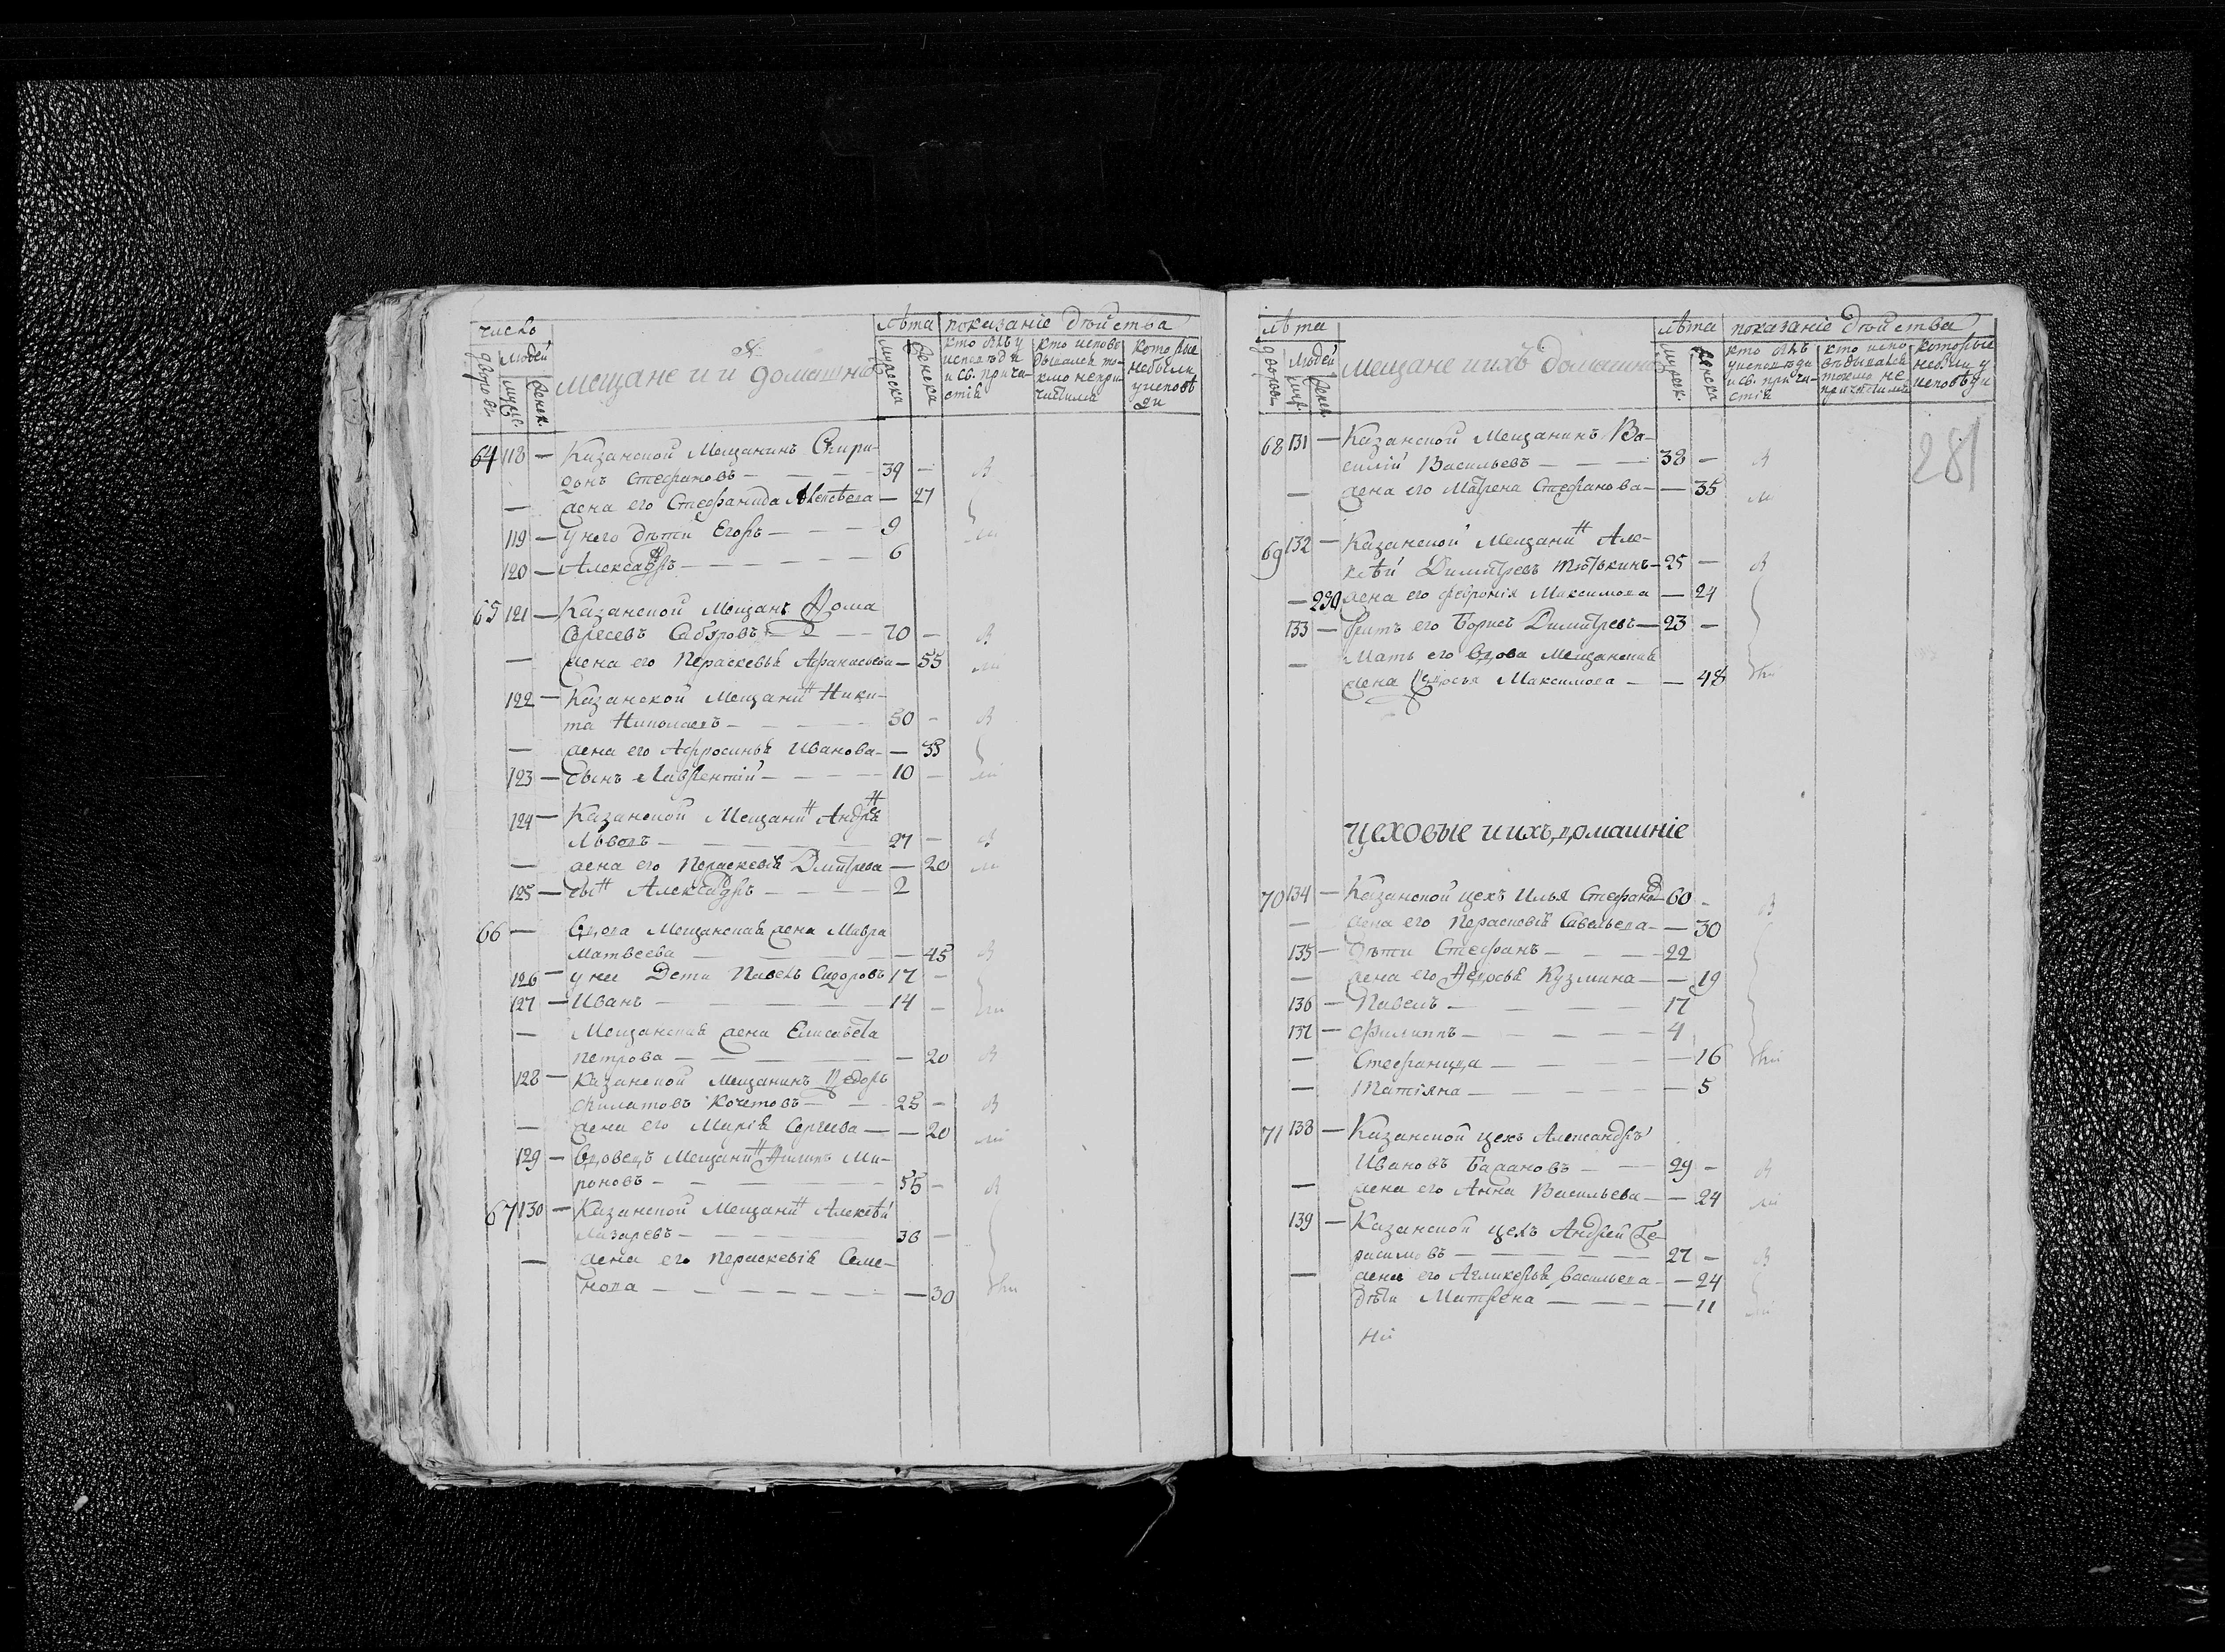 число
мещане и их домашніе
лѣта показаніе дѣйства
дворовъ
людей
муже.
женск.
мужеска
женска
кто былъ у исповѣди и св. причастія
кто исповѣдывался токмо не причастился
которые не были у исповѣди
64 118 — Казанской Мещанинъ Спири-
донъ Стефановъ — 39 —
— жена его Стефанида Алексѣева — 27
119 — у него дѣти Егоръ — 9
120 — Александръ — 6
65 121 — Казанской Мещанъ Фома
70 —
— жена его Параскевья Афанасьева — 55
122 — Казанской Мещанинъ Ники-
та Николаевъ — 50 —
— жена его Афросинья Иванова — 38
123 — сынъ Лаврентій — 10 —
124 — Казанской Мещанинъ Андрей
Львовъ — 27 —
— жена его Параскевія Дмитрева — 20
125 — сынъ Александръ — 2
66 — Вдова Мещанская жена Мавра
Матвеева — 45
126 — у нее Дети Павелъ Сидоровъ 17 —
127 — Иванъ — 14 —
— Мещанская жена Елисавета
Петрова — 20
128 — Казанской Мещанинъ Федоръ
Филатовъ Кочетовъ — 25 —
— жена его Марія Сергиева — 20
129 — Вдовецъ Мещанинъ Филипъ Ми-
роновъ — 55 —
67 130 — Казанской Мещанинъ Алексѣй
Лазаревъ — 36 —
— жена его Параскевія Семе-
нова — 30
лѣта
мещане и ихъ домашніе
лѣта показаніе дѣйства
дворовъ
людей
женск.
мужеск.
женска
кто былъ у исповѣди и св. причастія
кто исповѣдывался токмо не причастился
которые не были у исповѣди
281
68 131 — Казанской Мещанинъ Ва-
силій Васильевъ — 38 —
— жена его Матрена Стефанова — 35
69 132 — Казанской Мещанинъ Але-
ксѣй Димитревъ 25 —
— 230 жена его Февронія Максимова — 24
133 — братъ его Борисъ Димитревъ — 23 —
— Мать его Вдова Мещанская
жена Федосья Максимова — 48
Цеховые и ихъ домашніе
70 134 — Казанской цехъ Илья Стефановъ 60 —
— жена его Параскевія Савельева — 30
135 — Дѣти Стефанъ — 22
— жена его Федосья Кузмина — 19
136 — Павелъ — 17
137 — Филиппъ — 4
— Стефанида — 16
— Татіяна — 5
71 138 — Казанской цехъ Александръ
Ивановъ Барановъ — 29 —
— жена его Анна Васильева — 24
139 — Казанской цехъ Андрей Ге-
расимовъ — 27 —
— жена его Агликерья Васильева — 24
дѣти Матрена — 11